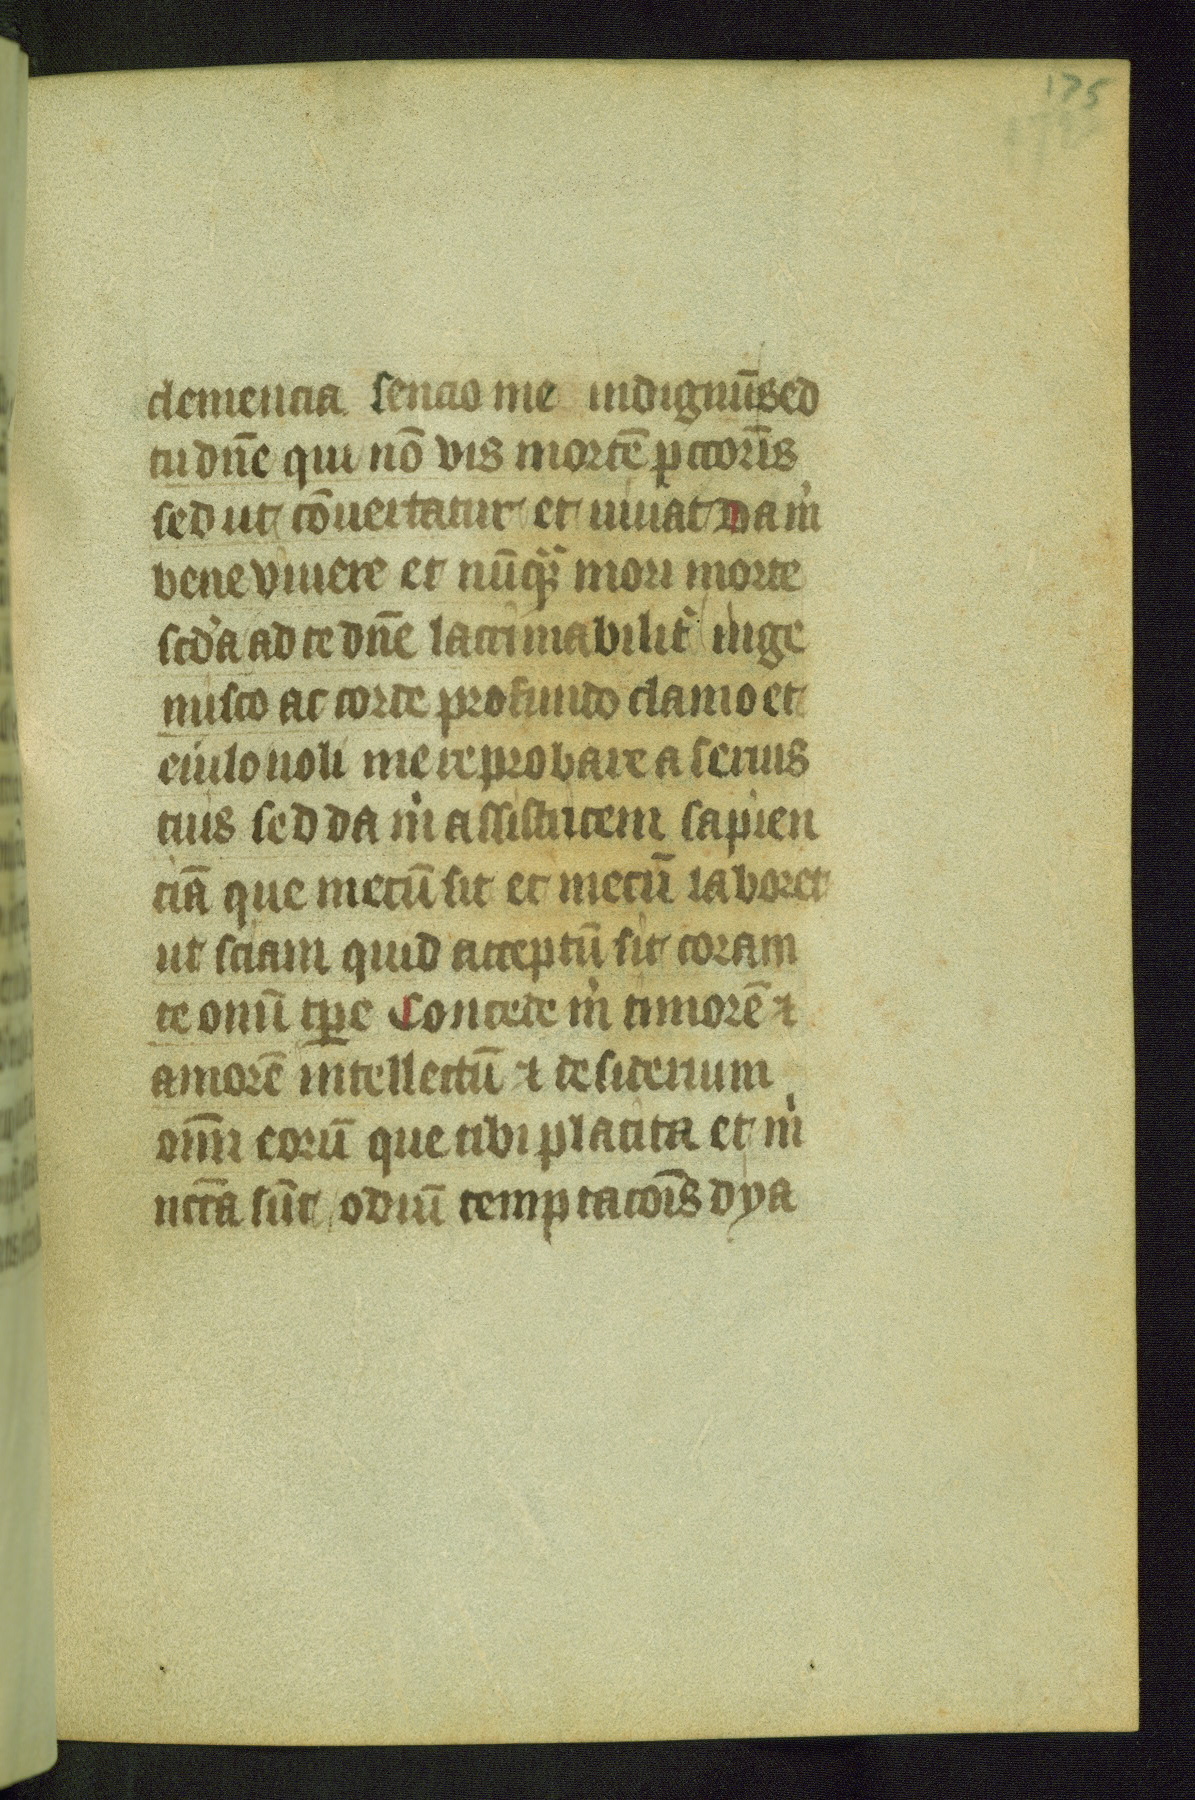 175
clemencia sencio me indignū sed
tu dn̄e qui nō vis mortē pctorīs
sed ut cōuertatur et uiuat Da m̍
bene viuere et nūq̄ mori morte
scd̍a ad te dn̄e lacrimabilit̍ inge
misco ac corde profundo clamo et
eiulo noli me reprobare a seruis
tuis sed da m̍ assistricem sapien
ciā que mecū sit et mecū laboret
ut sciam quid acceptū sit coram
te omī tp̄e Concede m̍ timorē ⁊
amorē intellectū ⁊ desiderium
omī eorū que tibi placita et m̍
nccā sūt odiū temptacōis dya